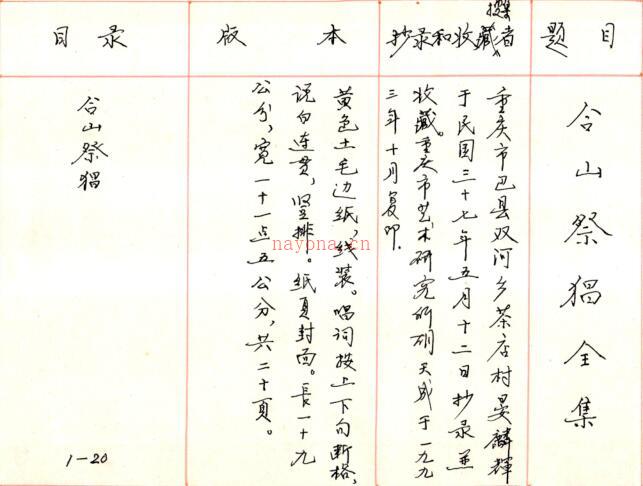 题目
合山祭猖全集
撰者
抄录和收藏
重庆市巴县双河乡茶店村晏麟辉
于民国三十七年五月十二日抄录并
收藏。重庆市艺术研究所胡天成于一九九
三年十月复印.
版本
黄色土毛边纸,线装。唱词按上下句断格,
说白连贯,竖排。纸页封面。長一十九
公分,寬一十一点五公分,共二十頁。
目录
合山祭猖
1-20
nayona.cn